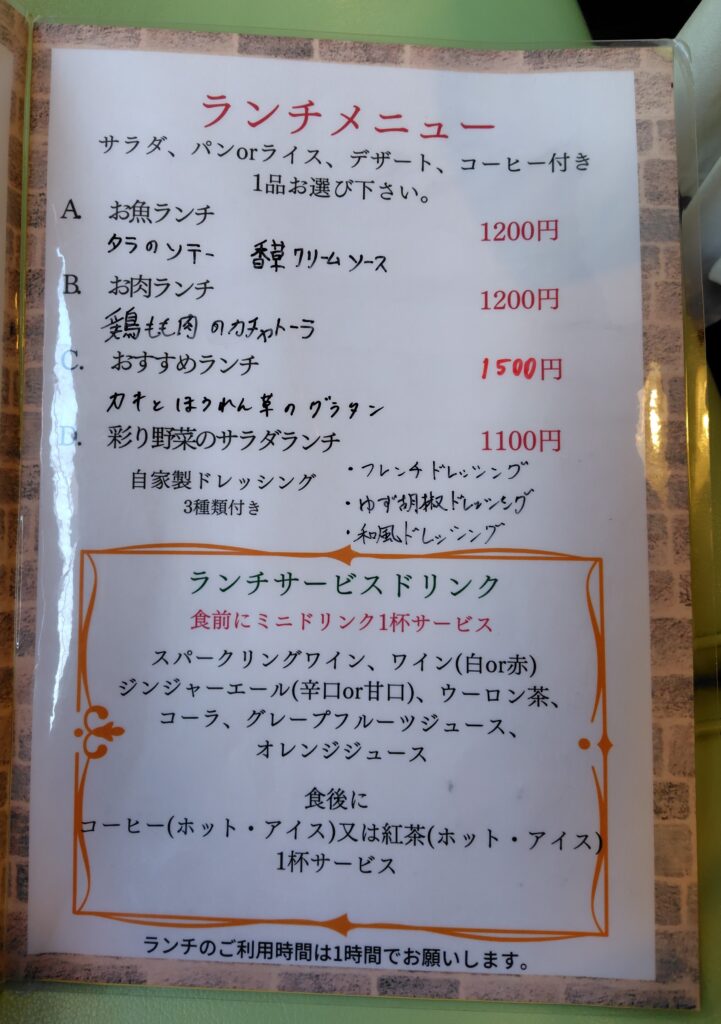 ランチメニュー
サラダ、パンorライス、デザート、コーヒー付き
1品お選び下さい。
A. お魚ランチ 1200円
タラのソテー 香草クリームソース
B. お肉ランチ 1200円
鶏もも肉のカチャトーラ
C. おすすめランチ 1500円
カキとほうれん草のグラタン
D. 彩り野菜のサラダランチ 1100円
自家製ドレッシング
3種類付き
・フレンチドレッシング
・ゆず胡椒ドレッシング
・和風ドレッシング
ランチサービスドリンク
食前にミニドリンク1杯サービス
スパークリングワイン、ワイン(白or赤)
ジンジャーエール(辛口or甘口)、ウーロン茶、
コーラ、グレープフルーツジュース、
オレンジジュース
食後に
コーヒー(ホット・アイス)又は紅茶(ホット・アイス)
1杯サービス
ランチのご利用時間は1時間でお願いします。